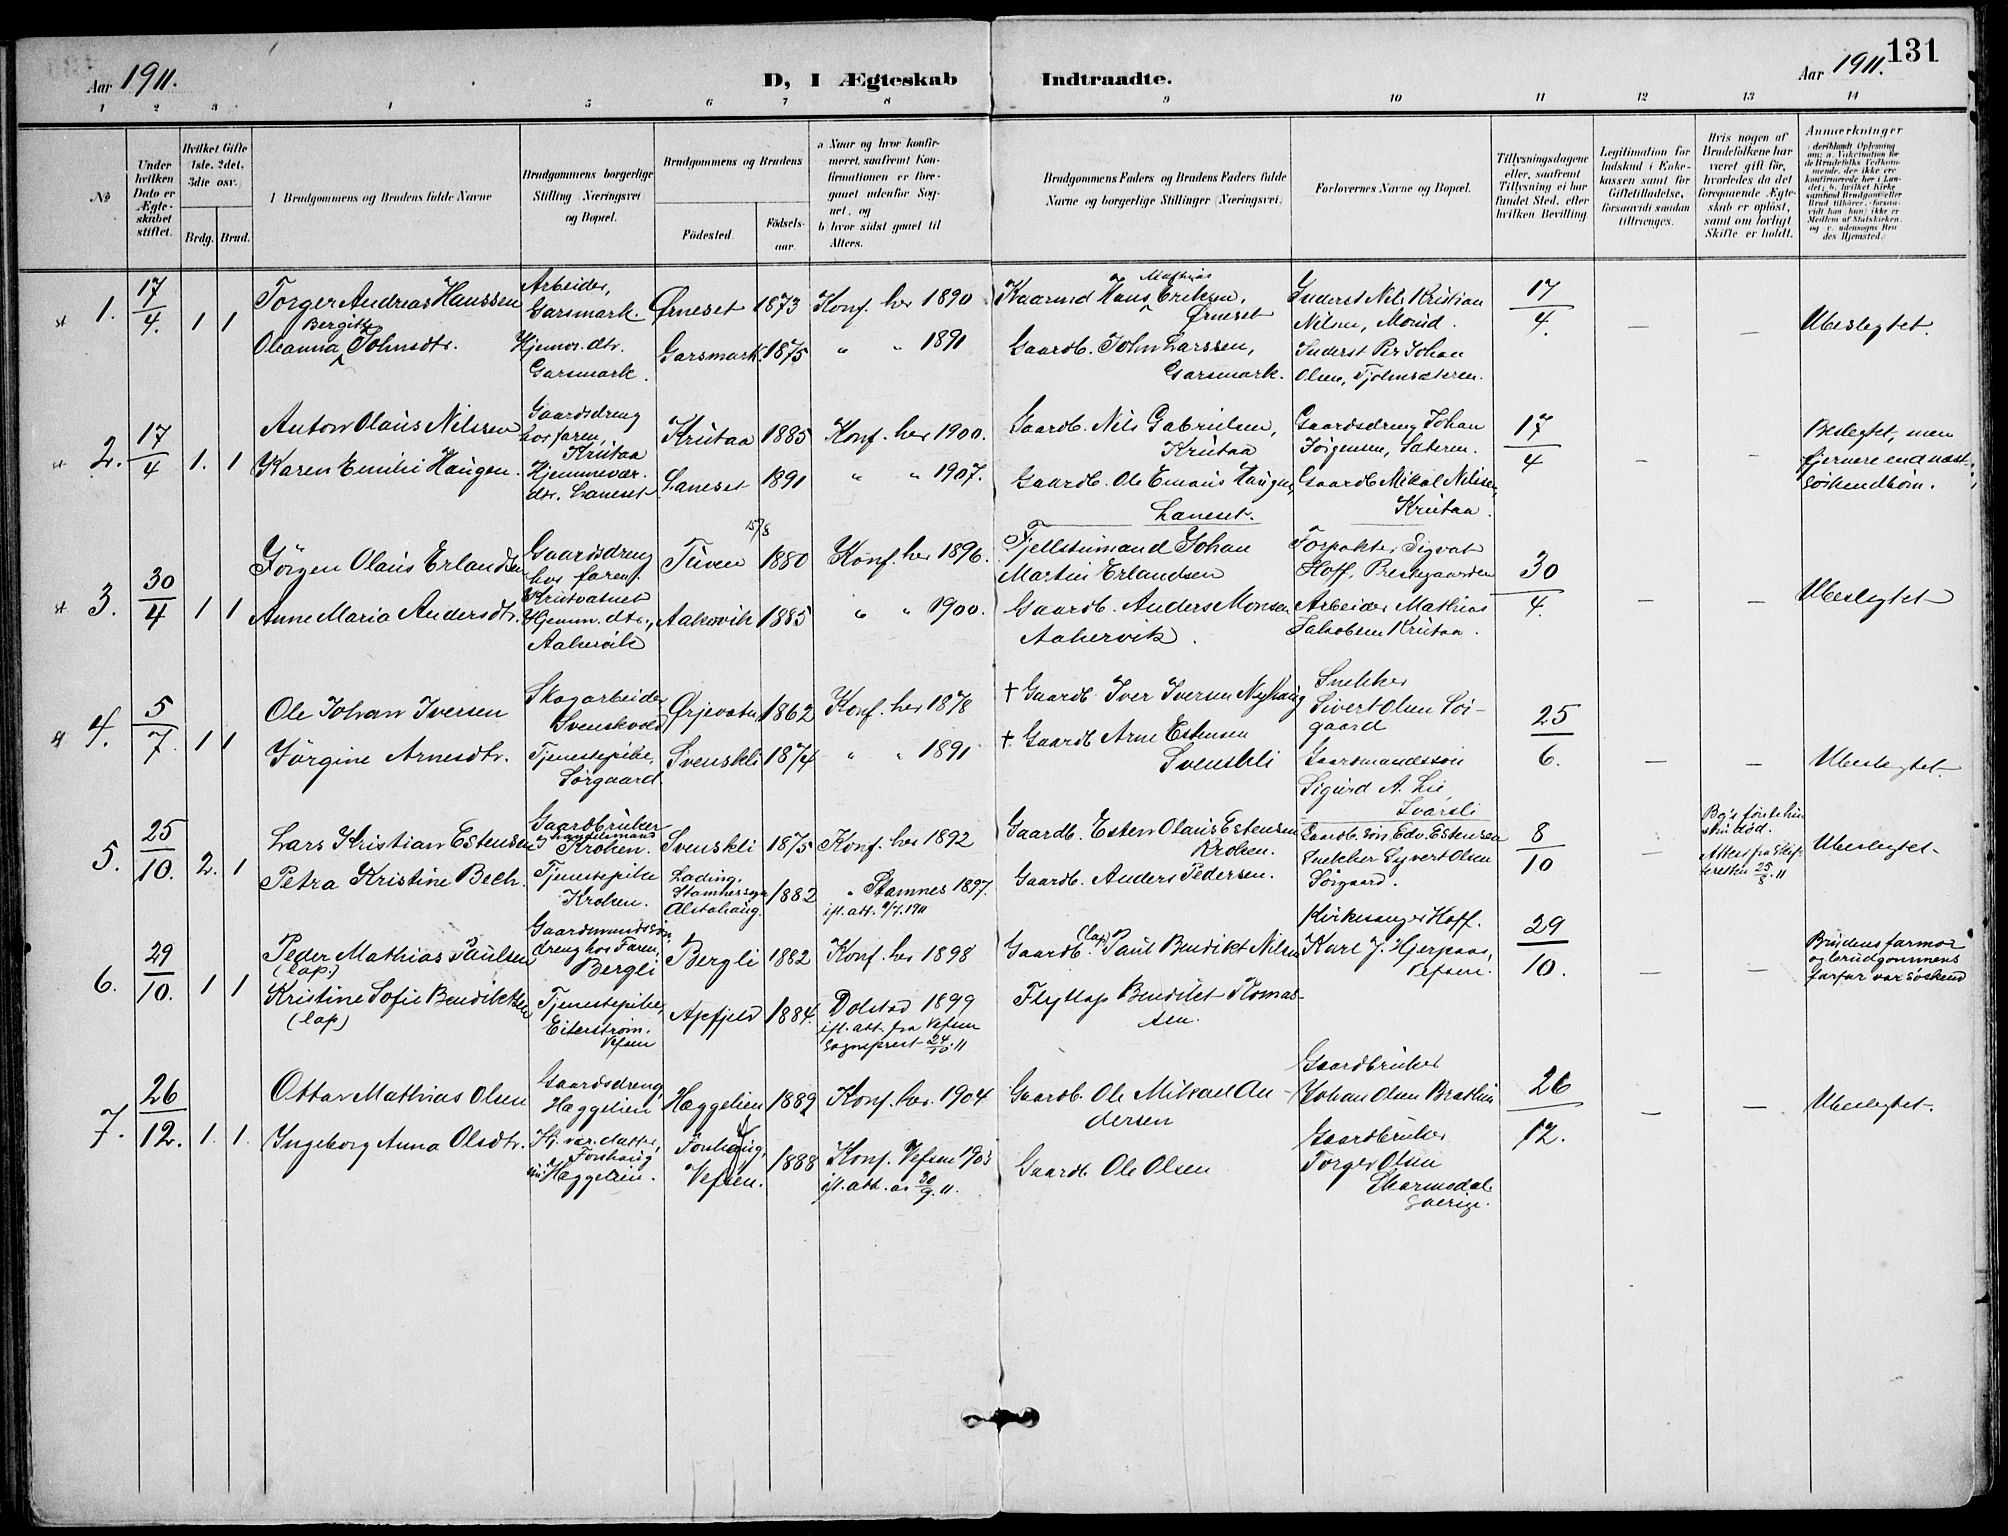 Aar 1911.
D, I Ægteskab Indtraadte.
Aar 1911.
131
1 2 3 4 5 6 7 8 9 10 11 12 13 14
No
Under hvilken Dato er Ægteskabet stiftet.
Hvilket Gifte (1ste. 2det, 3die osv.)
Brdg. Brud.
I Brudgommens og Brudens fulde Navne
Brudgommens borgerlige Stilling (Næringsvei) og Bopæl.
Brudgommens og Brudens
Födested.
Födselsaar.
a Naar og hvor konfirmeret, saafremt Konfirmationen er foregaaet udenfor Sognet, og
b) hvor sidst gaaet til Alters.
Brudgommens Faders og Brudens Faders fulde Navne og borgerlige Stillinger (Næringsvei)
Forlovernes Navne og Bopæl.
Tillysningsdagene eller, saafremt Tillysning ei har fundet Sted, efter hvilken Bevilling.
Legitimation for Indskud i Enkekassen samt for Giftetilladelse, forsaavidt saadan tiltrænges.
Hvis nogen af Brudefolkene har været gift för, hvorledes da det foregaaende Ægteskab er oplöst, samt om lovligt Skifte er holdt.
Anmærkninger
1. 17/4. 1 1
Torger Andreas Hanssen
Arbeider, Garsmark.
Ørneset 1873
Konf. her 1890
Kaarmd Hans Mathias Eriksen, Ørneset
Inderst Nils Kristian Nilsen, Moind.
17/4. — —
Ubeslegtet.
Oleanna Bergitte Johnsdtr.
Hjemv. dtr. Garsmark.
Garsmark. 1875
" " 1891
Gaardb. John Larssen, Garsmark.
Inderst Per Johan Olsen, Tjolmsæteren.
2. 17/4 1. 1
Anton Olaus Nilssen
Gaardsdreng hos faren, Krutaa
Krutaa 1885
Konf. her 1900.
Gaardb. Nils Gabrielsen, Krutaa
Gaardsdreng Johan Jørgensen, Sæteren.
17/4
Beslegtet, men fjernere end næstsøskendbörn.
Karen Emilie Haugen.
Hjemmevær. dtr. Laneset
Laneset 1891
" " 1907.
Gaardb. Ole Emaus Haugen, Laneset.
Gaardb Mikal Nilssen, Krutaa.
3. 30/4 1 1
Jörgen Olaus Erlandsen
Gaardsdreng hos faren, Krutvatnet
Tuven 15/8 1880
Konf. her 1896.
Fjellstuemand Johan Martin Erlandsen
Forpakter Sigvat Hoff, Prestegaarden
30/4. — —
Ubeslegtet
Anne Maria Andersdtr.
Hjemm. dtr., Aakervik
Aakervik 1885
" " 1900.
Gaardb. Anders Monsen Aakervik.
Arbeider Mathias Jakobsen Krutaa.
4. 5/7. 1 1
Ole Johan Iversen
Skogarbeider Svenskvold
Ørjevatn 1862
Konf. her 1878
† Gaardb. Iver Iversen Nyhaug
Snekker Sivert Olsen Sörgaard
25/6. — —
Ubeslegtet.
Jörgine Arnesdtr.
Tjenestepike, Sörgaard.
Svenskli 1874
" " 1891
† Gaardb Arne Estensen Svenskli
Gaardmandssön Sigurd A. Lie, Ivarsli
5. 25/10. 2. 1
Lars Kristian Estensen
Gaardbruker og handelsmand Kroken.
Svenskli 1875
Konf. her 1892
Gaardb. Esten Olaus Estensen Kroken.
Gaardb. sön Edv. Estensen
8/10
Bg's förste hustru död.
Attest fra Skifteretten 25/8. 11
Ubeslegtet.
Petra Kristine Bech.
Tjenestepike Kroken.
Lading, Stamnes sogn Alstahaug. 1882
" Stamnes 1897. ifl. att. 9/7. 1911
Gaardb. Anders Pedersen.
Snekker Syvert Olsen Sörgaard.
6. 29/10. 1 1
Peder Mathias Paulsen (lap.)
Gaardmandssön, dreng hos Faren, Bergli
Bergli 1882
Konf. her 1898
Gaardb. (lap) Paul Bendikt Nilsen
Kirkesanger Hoff.
Karl J. Hjerpaas, Vefsen.
29/10. — —
Brudens farmor og brudgommens farfar var söskend
Kristine Sofie Bendiktsen (lap)
Tjenestepike, Eiterström. Vefsen
Apfjeld 1884.
Dolstad 1899 ifl. att. fra Vefsen Sogneprest 24/10. 11
Flytlap Bendikt Thomassen.
7. 26/12. 1. 1.
Ottar Mathias Olsen
Gaardsdreng, Hæggelien
Hæggelien 1889
Konf. her 1904
Gaardb. Ole Mikael Andersen
Gaardbruker Johan Olsen Bratlie
26/12. — —
Ubeslegtet.
Ingeborg Anna Olsdtr.
Hj. vær. datter, Fonhaug, nu Hæggelien.
Fonhaug, Vefsen. 1888
Konf. Vefsen 1903 ifl. att. as 30/9. 11.
Gaardb. Ole Olsen
Gaardbruker Torger Olsen Skarmodal Sverige.